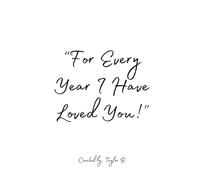 “For Every
Year I Have
Loved You!”
Created by Taylor B.